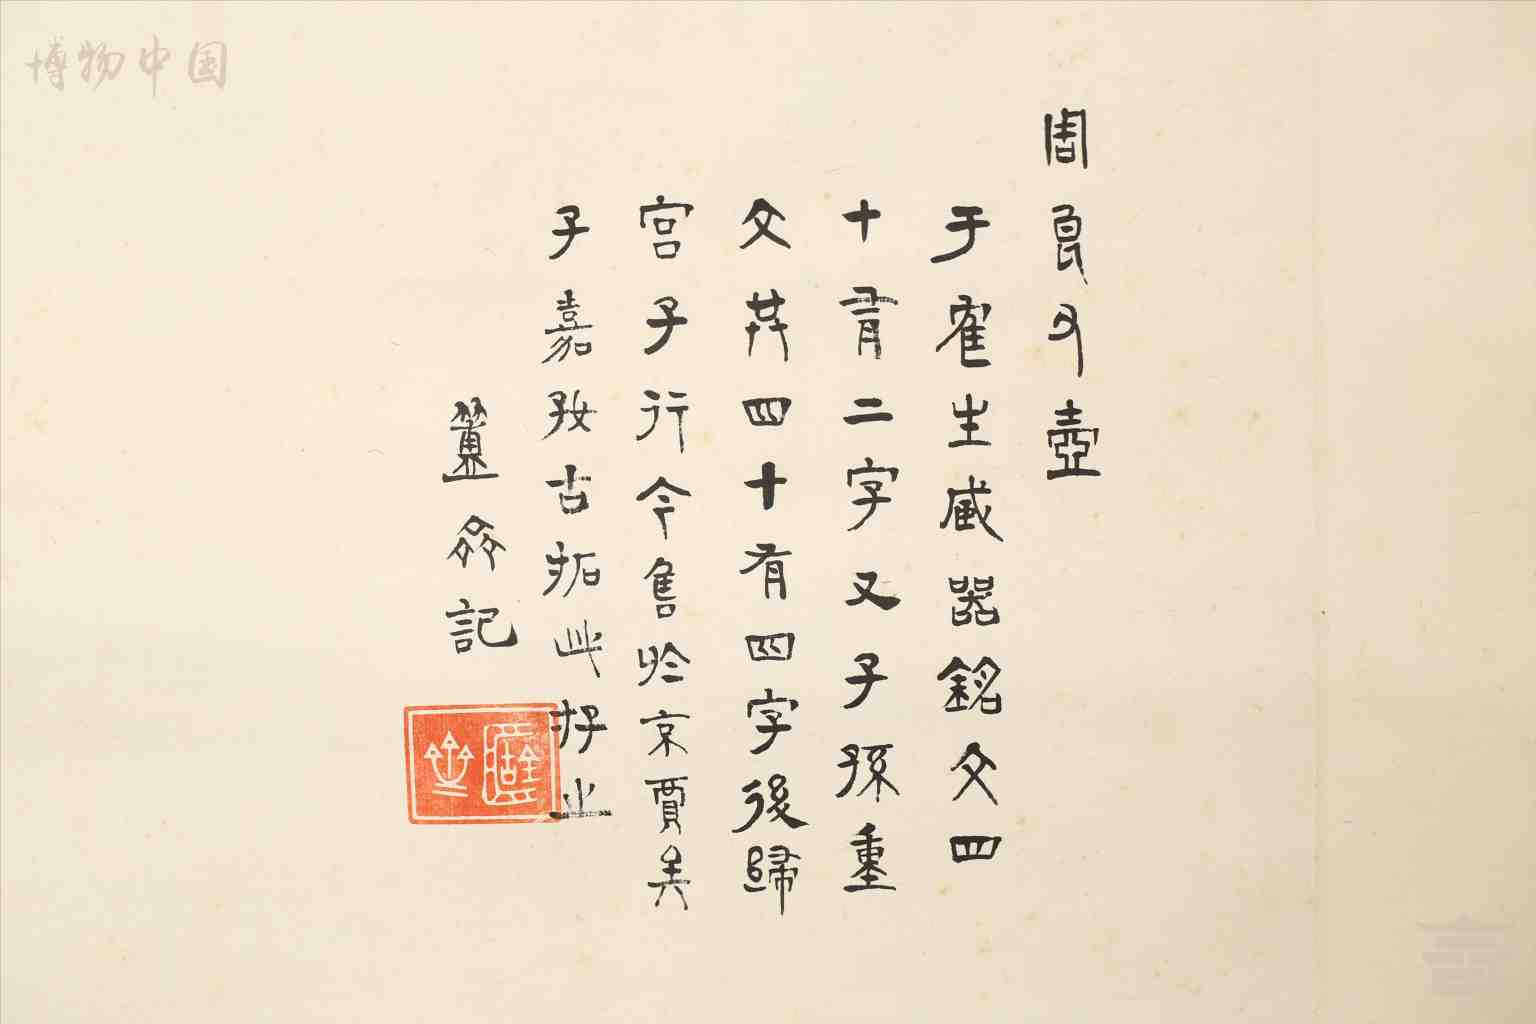 博物中国
周良父壺
于隺生臧器銘文四
十有二字又子孫重
文共四十有四字後歸
宮子行今售於京賈矣
子嘉好古拓此存之
簠齋記